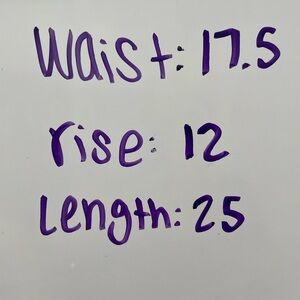 Waist: 17.5
rise: 12
Length: 25